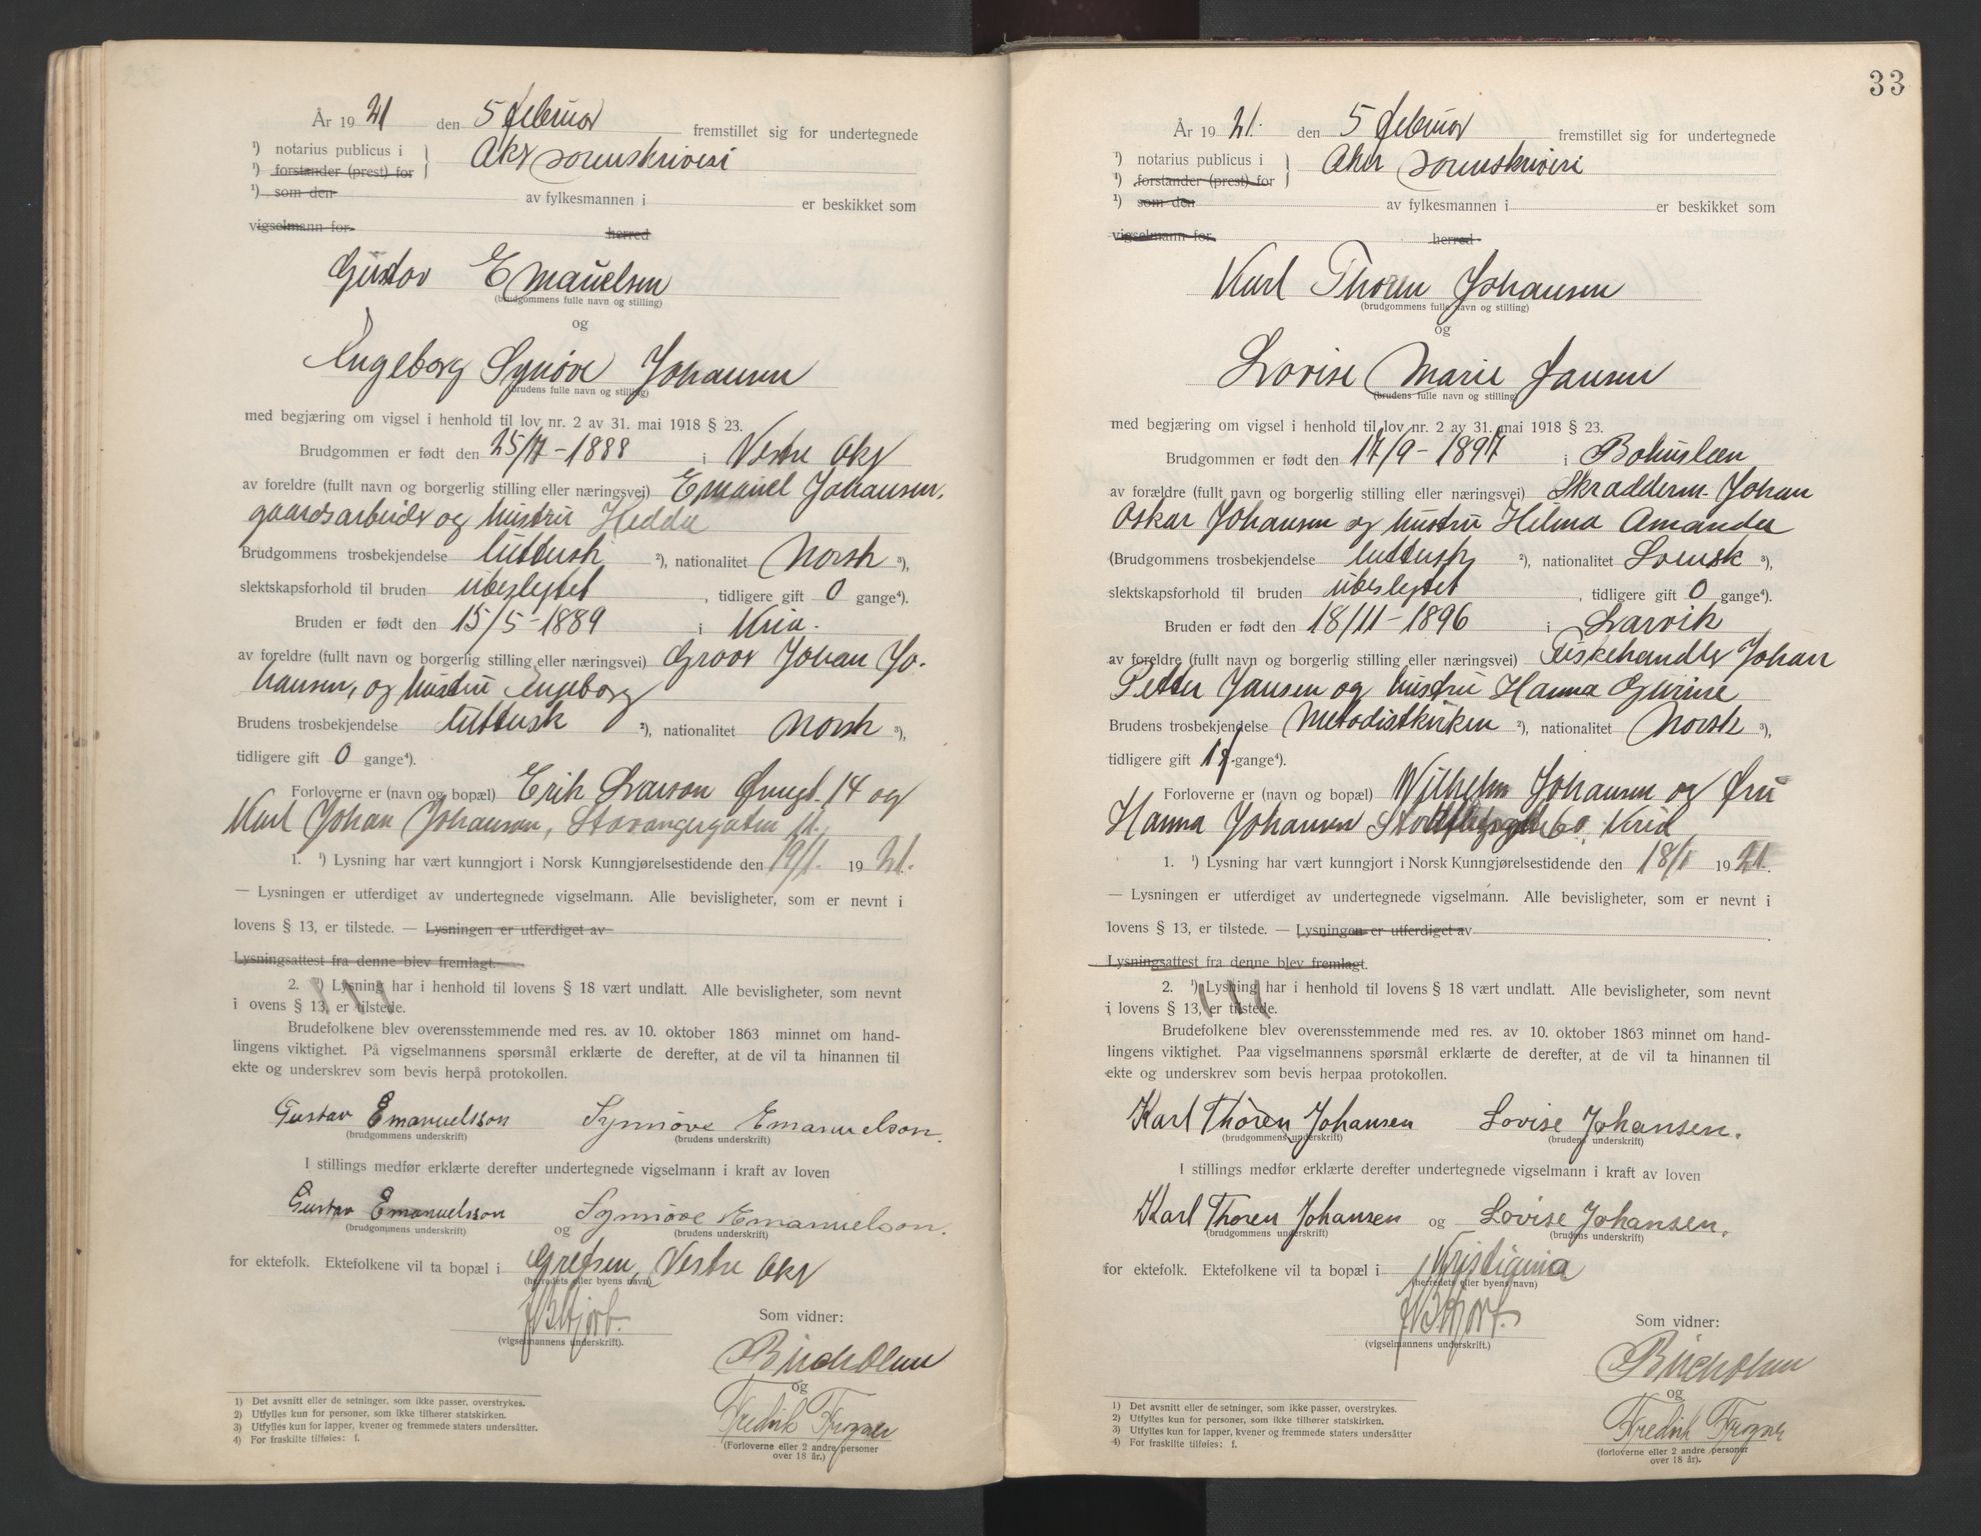 År 1921 den 5 februar fremstillet sig for undertegnede
¹) notarius publicus i } Aker sorenskriveri
¹) forstander (prest) for
¹) som den av fylkesmannen i er beskikket som
vigselmann for herred
Gustav Emanuelsen
(brudgommens fulle navn og stilling)
og
Engeborg Synøve Johansen
(brudens fulle navn og stilling)
med begjæring om vigsel i henhold til lov nr. 2 av 31. mai 1918 § 23.
Brudgommen er født den 25/7-1888 i Vestre Aker
av foreldre (fullt navn og borgerlig stilling eller næringsvei) Emanuel Johansen,
gaardsarbeider og hustru Hedda
Brudgommens trosbekjendelse luttersk ²), nationalitet Norsk ³),
slektskapsforhold til bruden ubeslegtet, tidligere gift 0 gange⁴).
Bruden er født den 15/5-1889 i Kria.
av foreldre (fullt navn og borgerlig stilling eller næringsvei) Grovs Johan Jo-
hansen, og hustru Engeborg
Brudens trosbekjendelse luttersk ²), nationalitet Norsk ³),
tidligere gift 0 gange⁴).
Forloverne er (navn og bopæl) Erik Larson 14 og
Karl Johan Johanson, Stavangergaten 11,
1. ¹) Lysning har vært kunngjort i Norsk Kunngjørelsestidende den 19/1. 1921.
— Lysningen er utferdiget av undertegnede vigselmann. Alle bevisligheter, som er nevnt i
lovens § 13, er tilstede. — Lysningen er utferdiget av
Lysningsattest fra denne blev fremlagt.
2. ¹) Lysning har i henhold til lovens § 18 vært undlatt. Alle bevisligheter, som nevnt
i ovens § 13, er tilstede.
Brudefolkene blev overensstemmende med res. av 10. oktober 1863 minnet om hand-
lingens viktighet. På vigselmannens spørsmål erklærte de derefter, at de vil ta hinannen til
ekte og underskrev som bevis herpå protokollen.
Gustav Emanuelsson Synnøve Emanuelson.
(brudgommens underskrift) (brudens underskrift)
I stillings medfør erklærte derefter undertegnede vigselmann i kraft av loven
Gustav Emanuelsson og Synnøve Emanuelson.
(brudgommens underskrift) (brudens underskrift)
for ektefolk. Ektefolkene vil ta bopæl i Grefsen, Vestre Aker
(herredets eller byens navn)
Hjort.
(vigselmannens underskrift).
Som vidner:
Bircholm
og
Fredrik Frogner
(Forloverne eller 2 andre personer
over 18 år.)
1) Det avsnitt eller de setninger, som ikke passer, overstrykes.
2) Utfylles kun for personer, som ikke tilhører statskirken.
3) Utfylles kun for lapper, kvener og fremmede staters undersåtter.
4) For fraskilte tilføies: f.
33
År 1921. den 5 februar fremstillet sig for undertegnede
¹) notarius publicus i } Aker sorenskriveri
¹) forstander (prest) for
¹) som den av fylkesmannen i er beskikket som
vigselmann for herred
Karl Thoren Johansen
(brudgommens fulle navn og stilling)
og
Lovise Marie Jansen
(brudens fulle navn og stilling)
med begjæring om vigsel i henhold til lov nr. 2 av 31. mai 1918 § 23.
Brudgommen er født den 17/9-1897 i Bohuslæn
av forældre (fullt navn og borgerlig stilling eller næringsvei) Skradderm. Johan
Oskar Johansen og hustru Helma Amanda
(Brudgommens trosbekjendelse luttersk ²), nationalitet Svensk ³),
slektskapsforhold til bruden ubeslegtet, tidligere gift 0 gange⁴).
Bruden er født den 18/11-1896 i Larvik
av foreldre (fullt navn og borgerlig stilling eller næringsvei) Fiskehandler Johan
Petter Jansen og hustru Hanna Gurine
Brudens trosbekjendelse Metodistkirken ²), nationalitet Norsk ³),
tidligere gift 1 gange⁴).
Forloverne er (navn og bopæl) Wilhelm Johansen og Fru
Hanna Johansen 60, Kria,
1. ¹) Lysning har vært kunngjort i Norsk Kunngjørelsestidende den 18/1 1921.
— Lysningen er utferdiget av undertegnede vigselmann. Alle bevisligheter, som er nevnt i
lovens § 13, er tilstede. — Lysningen er utferdiget av
Lysningsattest fra denne blev fremlagt.
2. ¹) Lysning har i henhold til lovens § 18 vært undlatt. Alle bevisligheter, som nevnt
i lovens § 13, er tilstede.
Brudefolkene blev overensstemmende med res. av 10. oktober 1863 minnet om hand-
lingens viktighet. Paa vigselmannens spørsmål erklærte de derefter, at de vil ta hinannen til
ekte og underskrev som bevis herpaa protokollen.
Karl Thoren Johansen Lovise Johansen.
(brudgommens underskrift) (brudens underskrift)
I stillings medfør erklærte derefter undertegnede vigselmann i kraft av loven
Karl Thoren Johansen og Lovise Johansen.
(brudgommens underskrift) (brudens underskrift)
for ektefolk. Ektefolkene vil ta bopæl i Kristiania
(herredets eller byens navn)
Hjort.
(vigselmannens underskrift).
Som vidner:
Bircholm
og
Fredrik Frogner
(forloverne eller 2 andre personer
over 18 år).
1) Det avsnitt eller de setninger, som ikke passer, overstrykes.
2) Utfylles kun for personer, som ikke tilhører statskirken.
3) Utfylles kun for lapper, kvener og fremmede staters undersåtter
4) For fraskilte tilføies: f.